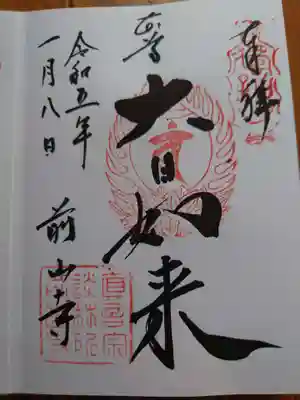 奉拝
大日如来
令和五年
一月八日
前山寺
真言宗
談林所